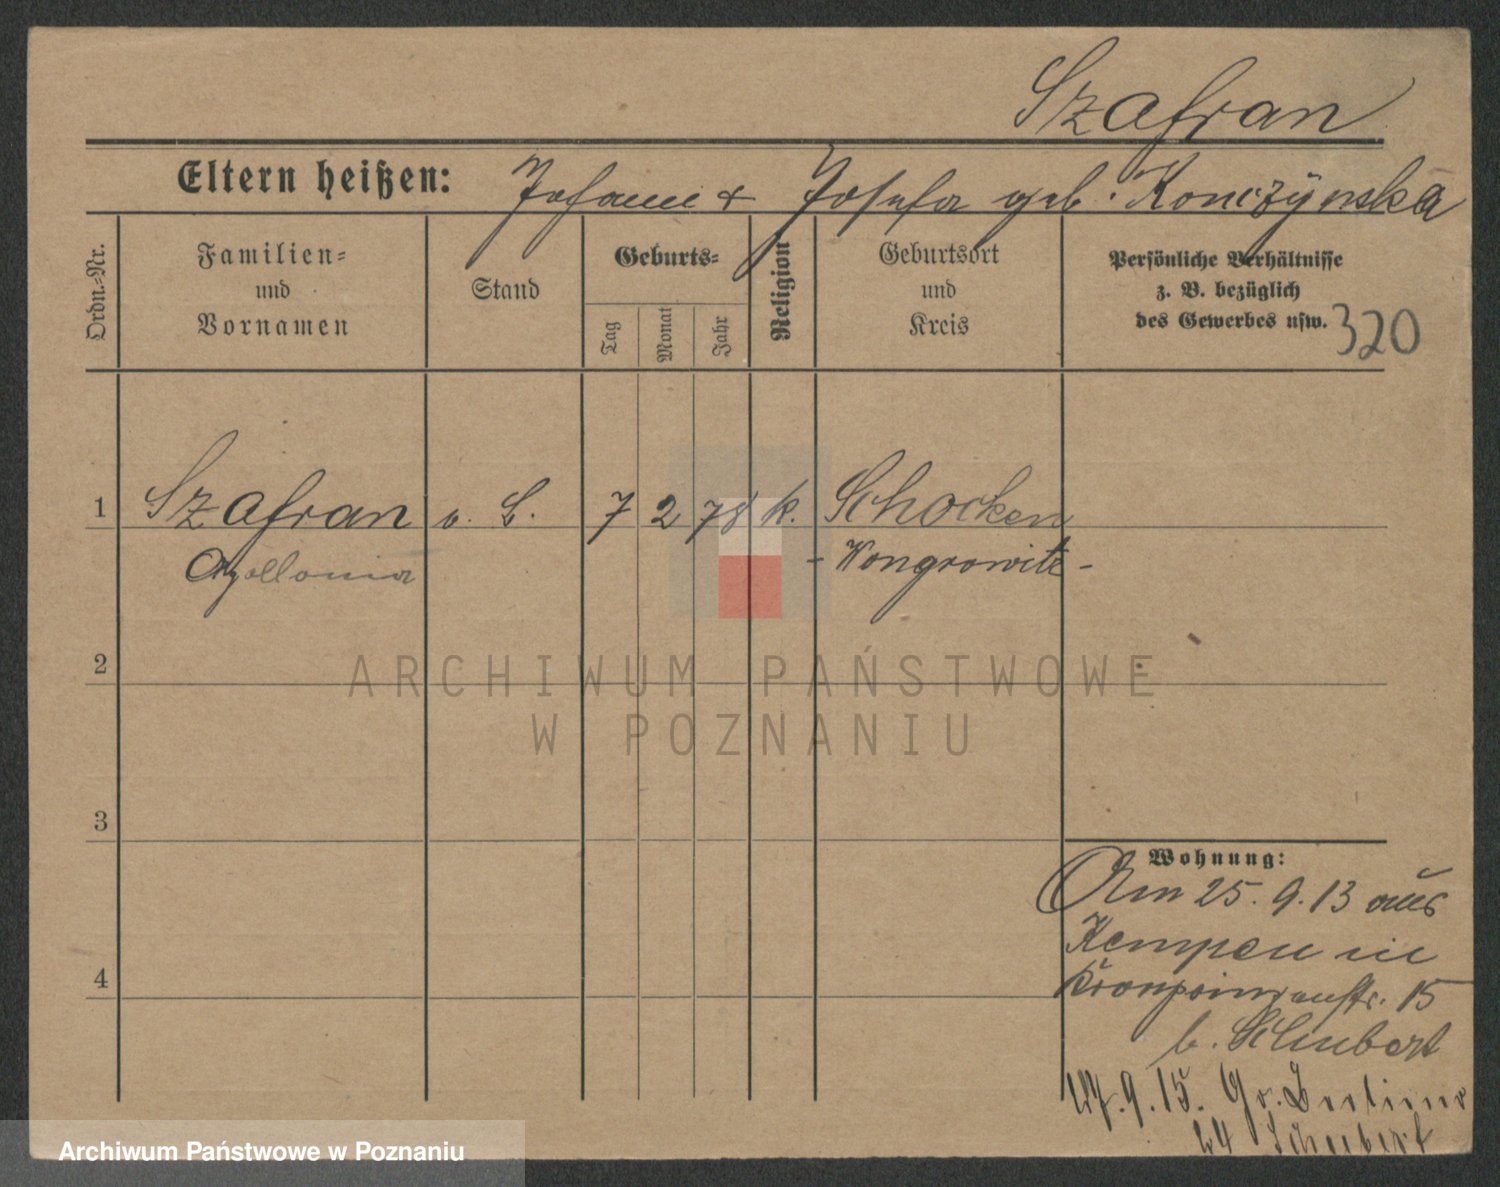 Szafran
Eltern heißen: Johann + Josefa geb. Konczynska
Ordn.-Nr.
Familien- und Vornamen
Stand
Geburts-
Tag
Monat
Jahr
Religion
Geburtsort und Kreis
Persönliche Verhältnisse
z. B. bezüglich
des Gewerbes usw.
320
1 Szafran o. B. 7 2 78 k. Schocken
Apollonia - Wongrowitz -
2
ARCHIWUM PAŃSTWOWE
W POZNANIU
3
Wohnung:
Am 25. 9. 13 aus
Kempen in
4
Kronprinzenstr. 15
b. Schubert
27. 9. 15. Gr. Berliner
24 Schubert
Archiwum Państwowe w Poznaniu